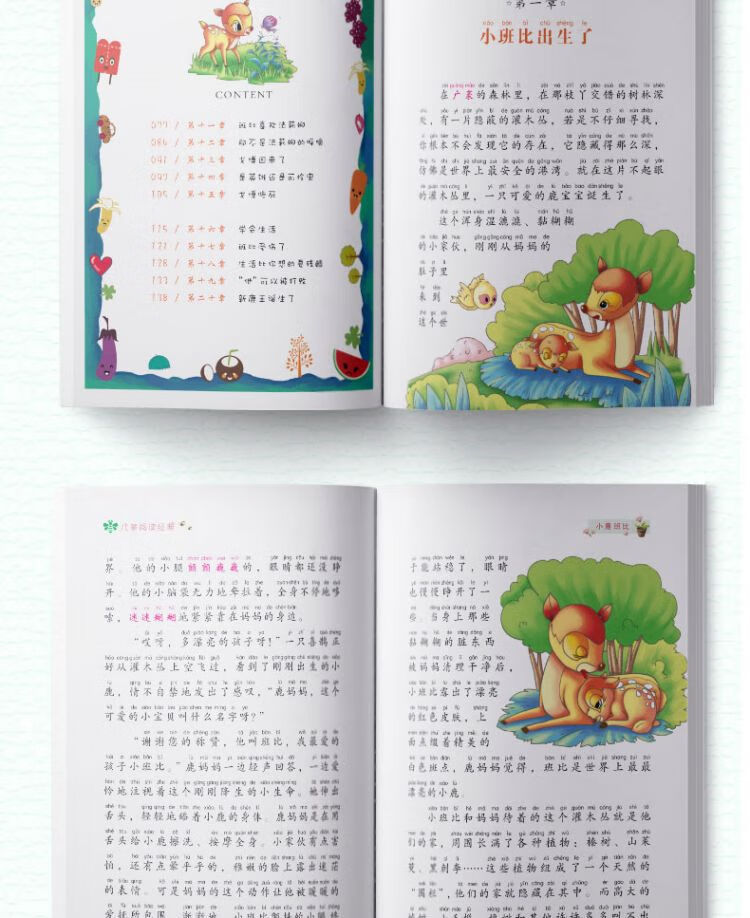 CONTENT
077 / 第十一章 班比喜欢法莉娜
086 / 第十二章 却不是法莉娜的呼唤
091 / 第十三章 戈博回来了
097 / 第十四章
105 / 第十五章
115 / 第十六章 学会生活
121 / 第十七章 班比受伤了
128 / 第十八章 生活比你想的更残酷
133 / 第十九章 “他”可以被打败
138 / 第二十章 新鹿王诞生了
第一章
小班比出生了
在广袤的森林里，在那枝丫交错的树林深
处，有一片隐蔽的灌木丛，若是不仔细寻找，
你根本不会发现它的存在，它隐藏得那么深，
仿佛是世界上最安全的港湾。就在这片不起眼
的灌木丛里，一只可爱的鹿宝宝诞生了。
这个浑身湿漉漉、黏糊糊
的小家伙，刚刚从妈妈的
肚子里
来到
这个世
儿童阅读经典
界。他的小腿颤颤巍巍的，眼睛都还没睁
开。他的小脑袋无力地耷拉着，全身不停地哆
嗦，迷迷糊糊地紧紧靠在妈妈的身边。
“哎呀，多漂亮的孩子呀！”一只喜鹊正
好从灌木丛上空飞过，看到了刚刚出生的小
鹿，情不自禁地发出了感叹，“鹿妈妈，这个
可爱的小宝贝叫什么名字呀？”
“谢谢您的称赞，他叫班比，我最爱的
孩子小班比。”鹿妈妈一边轻声回答，一边爱
怜地注视着这个刚刚降生的小生命。她伸出
舌头，轻轻地舔着小鹿的身体。鹿妈妈是在用
舌头给小鹿擦洗、按摩全身。小家伙有点害
怕，还有点晕乎乎的，稚嫩的脸上露出迷茫
的表情。可是妈妈的这个动作让他被暖暖的
爱抚所包围，
小鹿班比
于能站稳了，眼睛
也慢慢睁开了一
些。当身上那些
黏糊糊的脏东西
被妈妈清理干净后，
小班比露出了漂亮
的红色皮肤，上
面点缀着精美的
白色斑点，鹿妈妈觉得，班比是世界上最最
漂亮的小鹿。
小班比和妈妈待着的这个灌木丛就是他
们的家，周围长满了各种植物：榛树、山茱
萸、黑刺李……这些植物组成了一个天然的
“围栏”，他们的家就隐藏在其中。而高大的